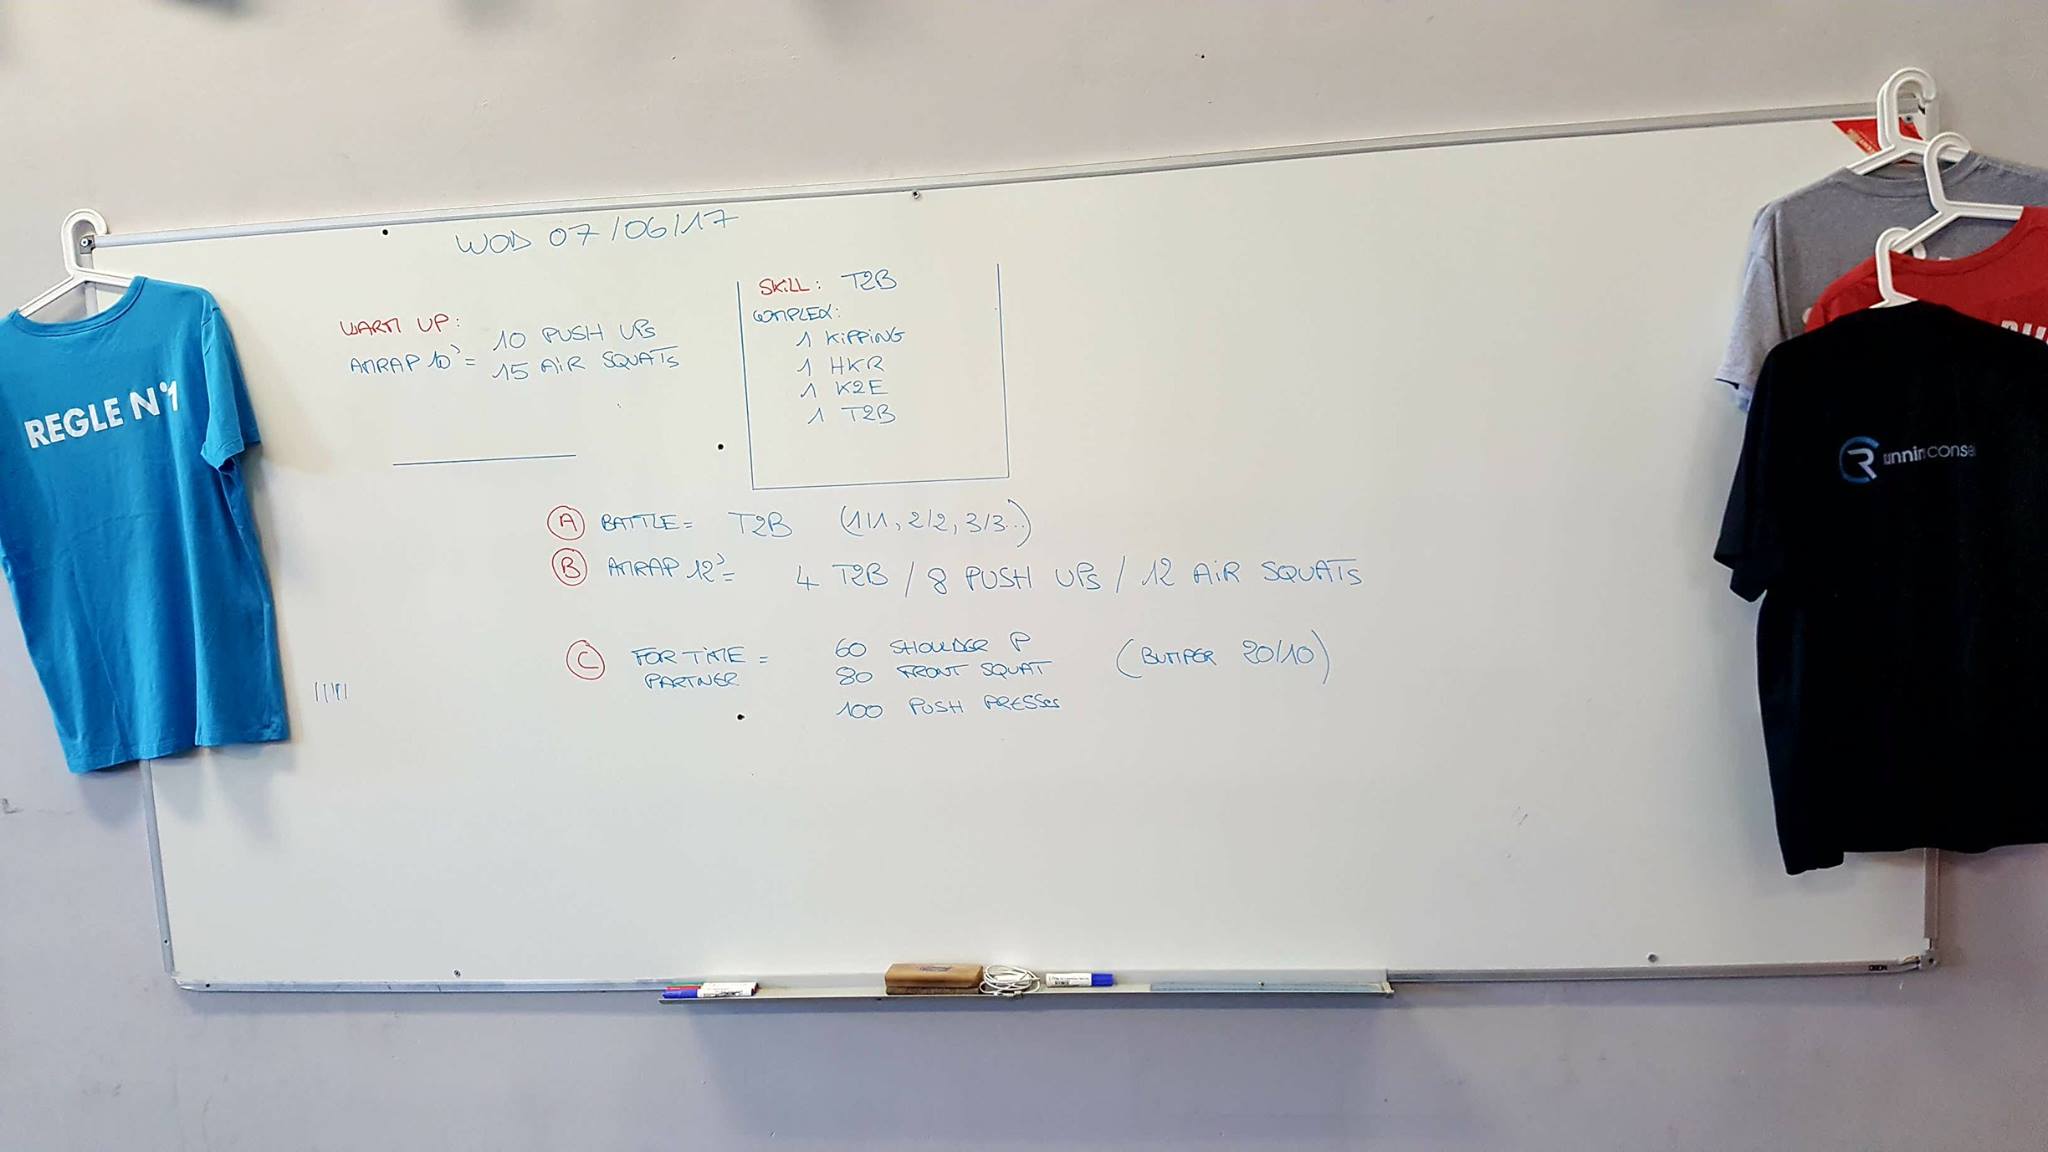 WOD 07/06/17
WARM UP:
AMRAP 10' = 10 PUSH UPs
15 AiR SQUATs
SKiLL: T2B
COMPLEX:
1 KiPPiNG
1 HKR
1 K2E
1 T2B
A BATTLE = T2B (1/1, 2/2, 3/3...)
B AMRAP 12' = 4 T2B / 8 PUSH UPs / 12 AiR SQUATs
C FOR TiME = 60 SHOULDER P (BUMPER 20/10)
PARTNER 80 FRONT SQUAT
100 PUSH PRESSes
REGLE N°1